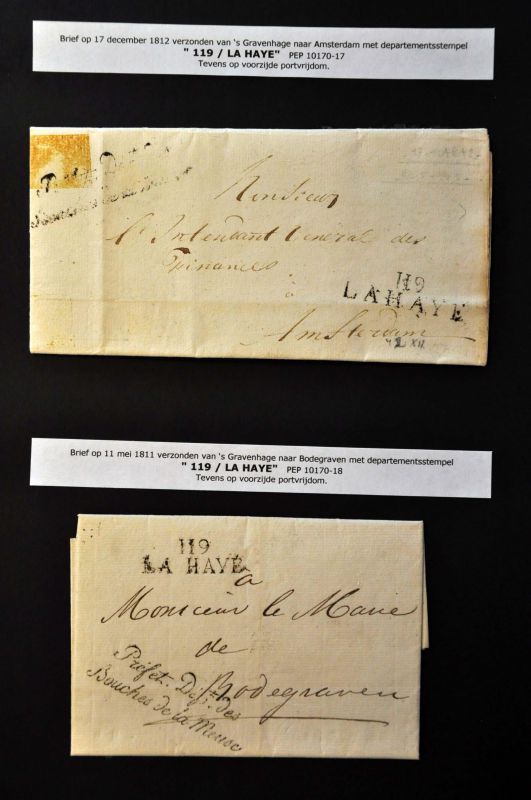 Brief op 17 december 1812 verzonden van 's Gravenhage naar Amsterdam met departementsstempel
" 119 / LA HAYE" PEP 10170-17
Tevens op voorzijde portvrijdom.
Monsieur
l'Intendant General des
Finances
à
Amsterdam
119
LAHAYE
Brief op 11 mei 1811 verzonden van 's Gravenhage naar Bodegraven met departementsstempel
" 119 / LA HAYE" PEP 10170-18
Tevens op voorzijde portvrijdom.
119
LA HAYE
a
Monsieur le Maire
de
Bodegraven
Préfet. Dépt. des
Bouches de la Meuse